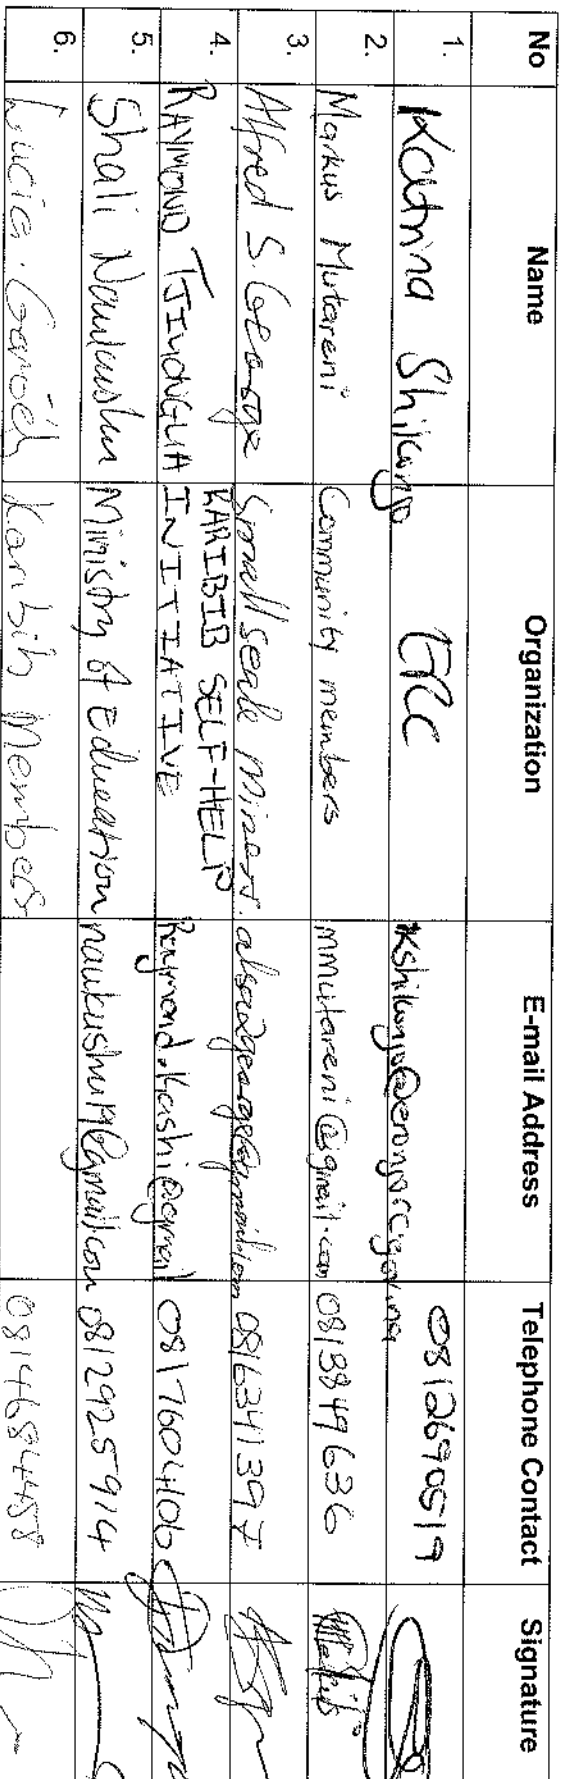 No Name Organization E-mail Address Telephone Contact Signature
1. Katrina Shikongo ERC 0812690519
2. Markus Mutareni Community members mmutareni@gmail.com 0813849636
3. Alfred S. George Small scale Miners. 0816341397
4. RAYMOND TJIUONGUA KARIBIB SELF-HELP INITIATIVE Raymond.kashi@gmail 0817604106
5. Shali Naukushu Ministry of Education 0812925914
6. Lucia Garoëh Karibib Members 0814684458